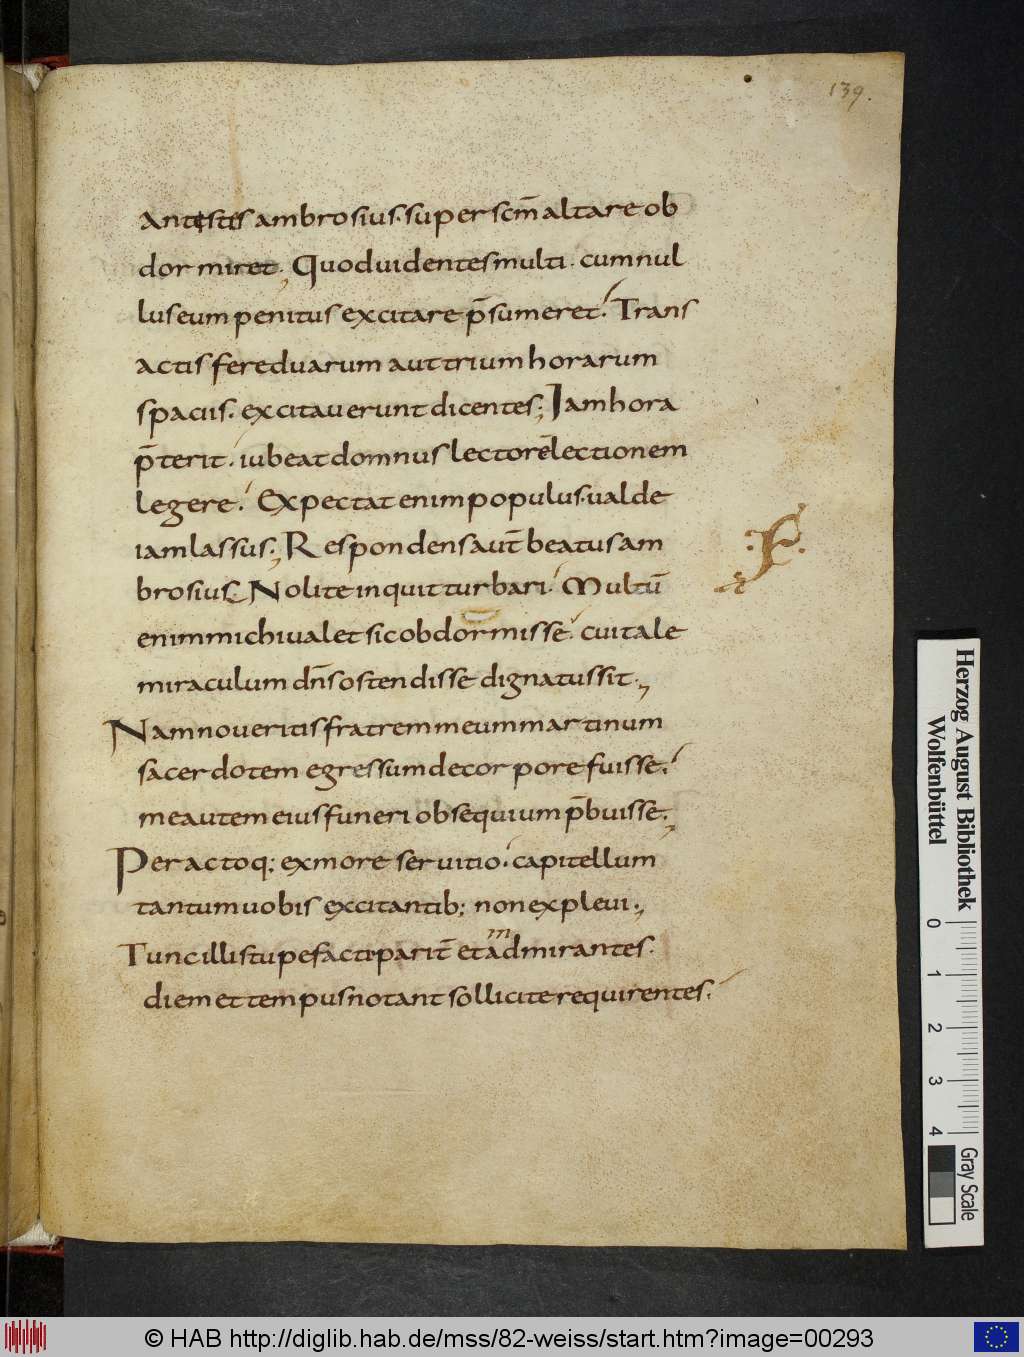 139.
Antestes ambrosius. super scm̄ altare ob
dormiret; Quod uidentes multi. cum nul
lus eum penitus excitare p̄sumeret. Trans
actis fere duarum aut trium horarum
spaciis. excitauerunt dicentes; Iam hora
p̄terit. iubeat domnus lectorē lectionem
legere. Expectat enim populus. ualde
iam lassus; Respondens aut̄ beatus am
brosius. Nolite inquit turbari. Multū
enim michi ualet sic obdormisse. cui tale
miraculum dn̄s ostendisse dignatus sit;
Nam noueritis fratrem meum martinum
sacerdotem egressum de corpore fuisse.
me autem eius funeri obsequium p̄buisse;
Peractoq; ex more seruitio. capitellum
tantum uobis excitantib; non expleui;
Tunc illi stupefacti parit̄ et admirantes.
m
diem et tempus notant sollicite requirentes.
Herzog August Bibliothek
Wolfenbüttel
0
1
2
3
4
Gray Scale
© HAB http://diglib.hab.de/mss/82-weiss/start.htm?image=00293